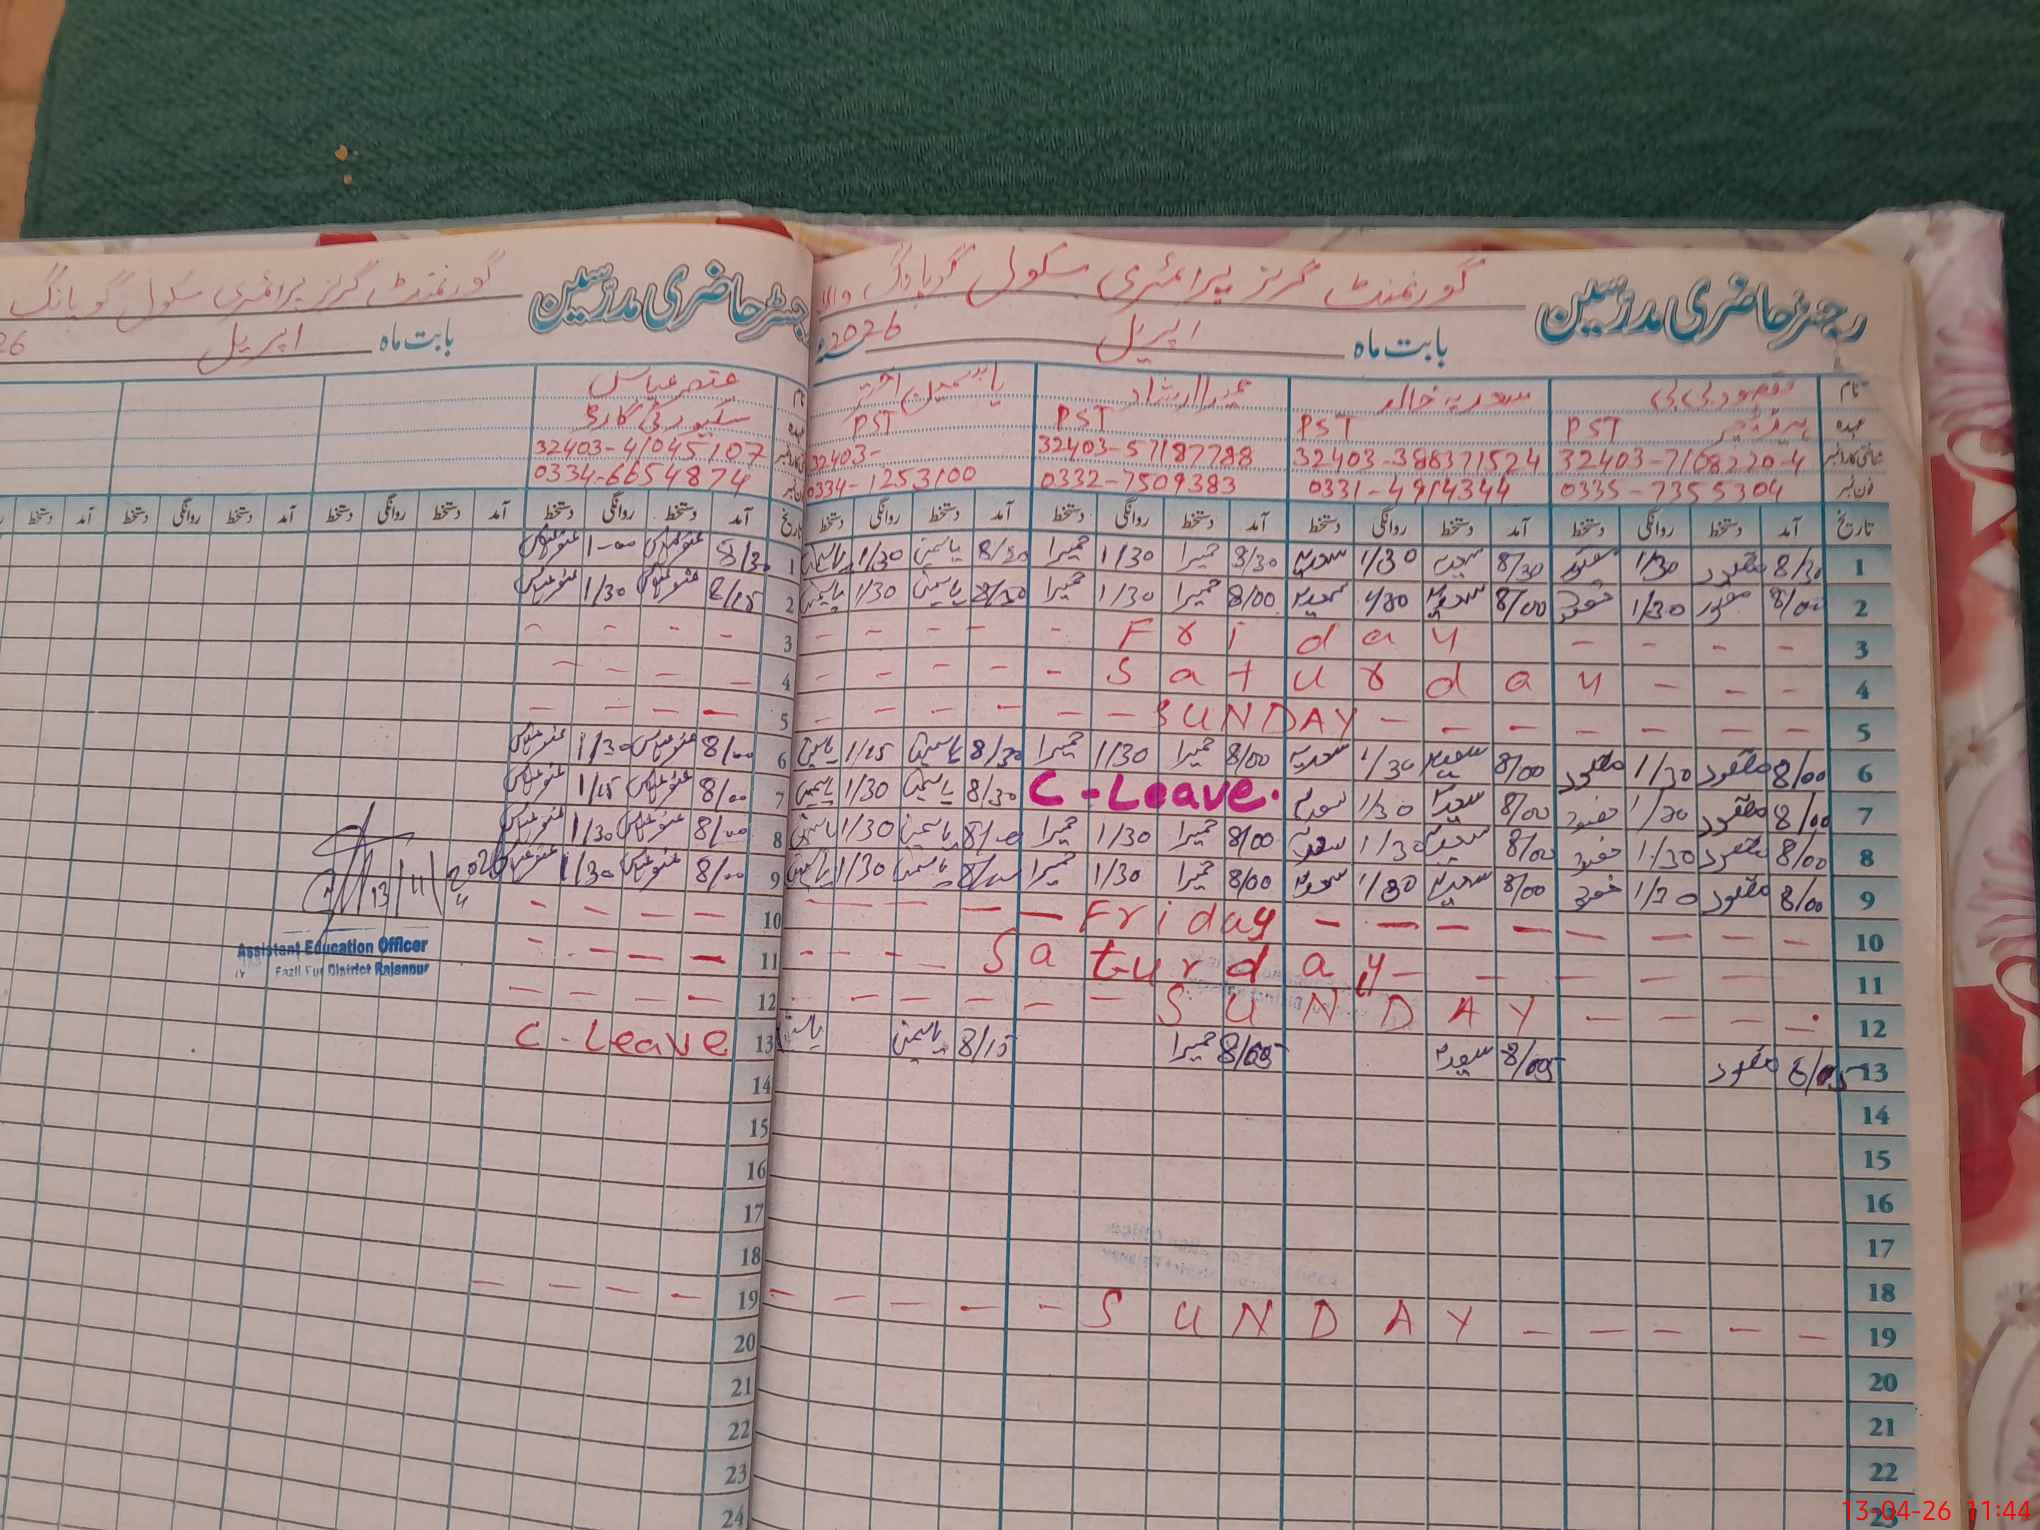 رجسٹر حاضری مدرسین گورنمنٹ گرلز پرائمری سکول گوپانگ والا
بابت ماہ اپریل 2026ء
نام مقصود بی بی سعدیہ خالد حمیرا ارشاد یاسمین اختر
عہدہ ہیڈ ٹیچر PST PST PST PST
شناختی کارڈ نمبر 32403-7168220-4 32403-388371524 32403-57187788 32403-
فون نمبر 0335-7355304 0331-4914344 0332-7509383 0334-1253100
تاریخ آمد دستخط روانگی دستخط آمد دستخط روانگی دستخط آمد دستخط روانگی دستخط آمد دستخط روانگی دستخط
1 8/30 مقصود 1/30 مقصود 8/30 سعدیہ 1/30 سعدیہ 8/30 حمیرا 1/30 حمیرا 8/30 یاسمین 1/30 یاسمین
2 8/00 مقصود 1/30 مقصود 8/00 سعدیہ 1/30 سعدیہ 8/00 حمیرا 1/30 حمیرا 8/30 یاسمین 1/30 یاسمین
3 Friday
4 Saturday
5 SUNDAY
6 8/00 مقصود 1/30 مقصود 8/00 سعدیہ 1/30 سعدیہ 8/00 حمیرا 1/30 حمیرا 8/30 یاسمین 1/15 یاسمین
7 8/00 مقصود 1/30 مقصود 8/00 سعدیہ 1/30 سعدیہ C-Leave. 8/30 یاسمین 1/30 یاسمین
8 8/00 مقصود 1/30 مقصود 8/00 سعدیہ 1/30 سعدیہ 8/00 حمیرا 1/30 حمیرا 8/00 یاسمین 1/30 یاسمین
9 8/00 مقصود 1/30 مقصود 8/00 سعدیہ 1/30 سعدیہ 8/00 حمیرا 1/30 حمیرا 8/00 یاسمین 1/30 یاسمین
10 Friday
11 Saturday
12 SUNDAY
13 8/05 مقصود 8/05 سعدیہ 8/05 حمیرا 8/15 یاسمین یاسمین
14
15
16
17
18
19 SUNDAY
20
21
22
23
رجسٹر حاضری مدرسین گورنمنٹ گرلز پرائمری سکول گوپانگ
بابت ماہ اپریل 26
نام عباس
عہدہ سکیورٹی گارڈ
32403-41045107
0334-6654874
تاریخ آمد دستخط روانگی دستخط آمد دستخط روانگی دستخط آمد دستخط روانگی دستخط آمد
1 8/30 1-00
2 8/15 1/30
3
4
5
6 8/00 1/30
7 8/00 1/15
8 8/00 1/30
9 8/00 1/30
10
11
12
13 C-Leave
14
15
16
17
18
19
20
21
22
23
24
13/4/2026
Assistant Education Officer
Fazil Pur District Rajanpur
13-04-26 11:44